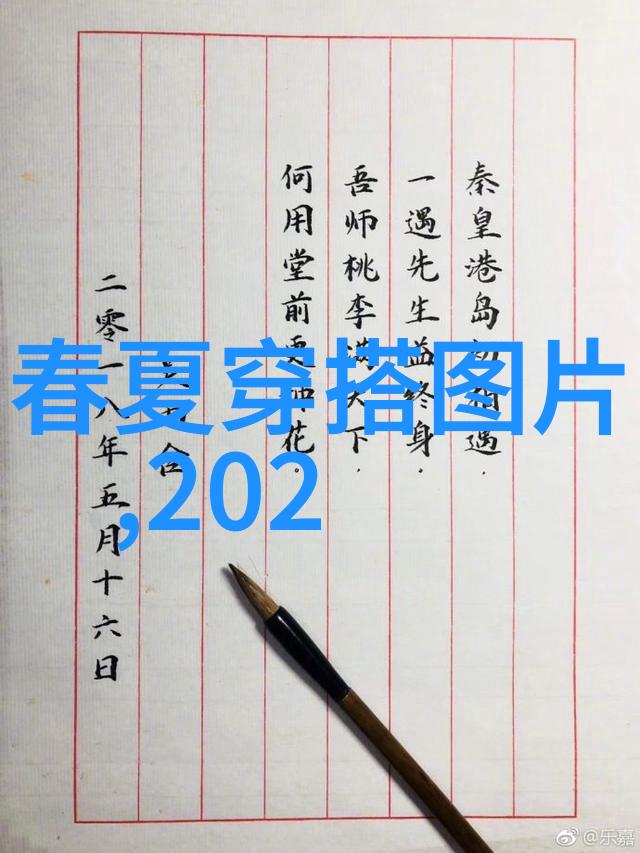 秦皇港岛初相遇.
一遇先生益终身.
吾师桃李满天下.
何用堂前更种花。
合
二零一八年五月十六日
春夏穿搭图片
,202
@乐嘉